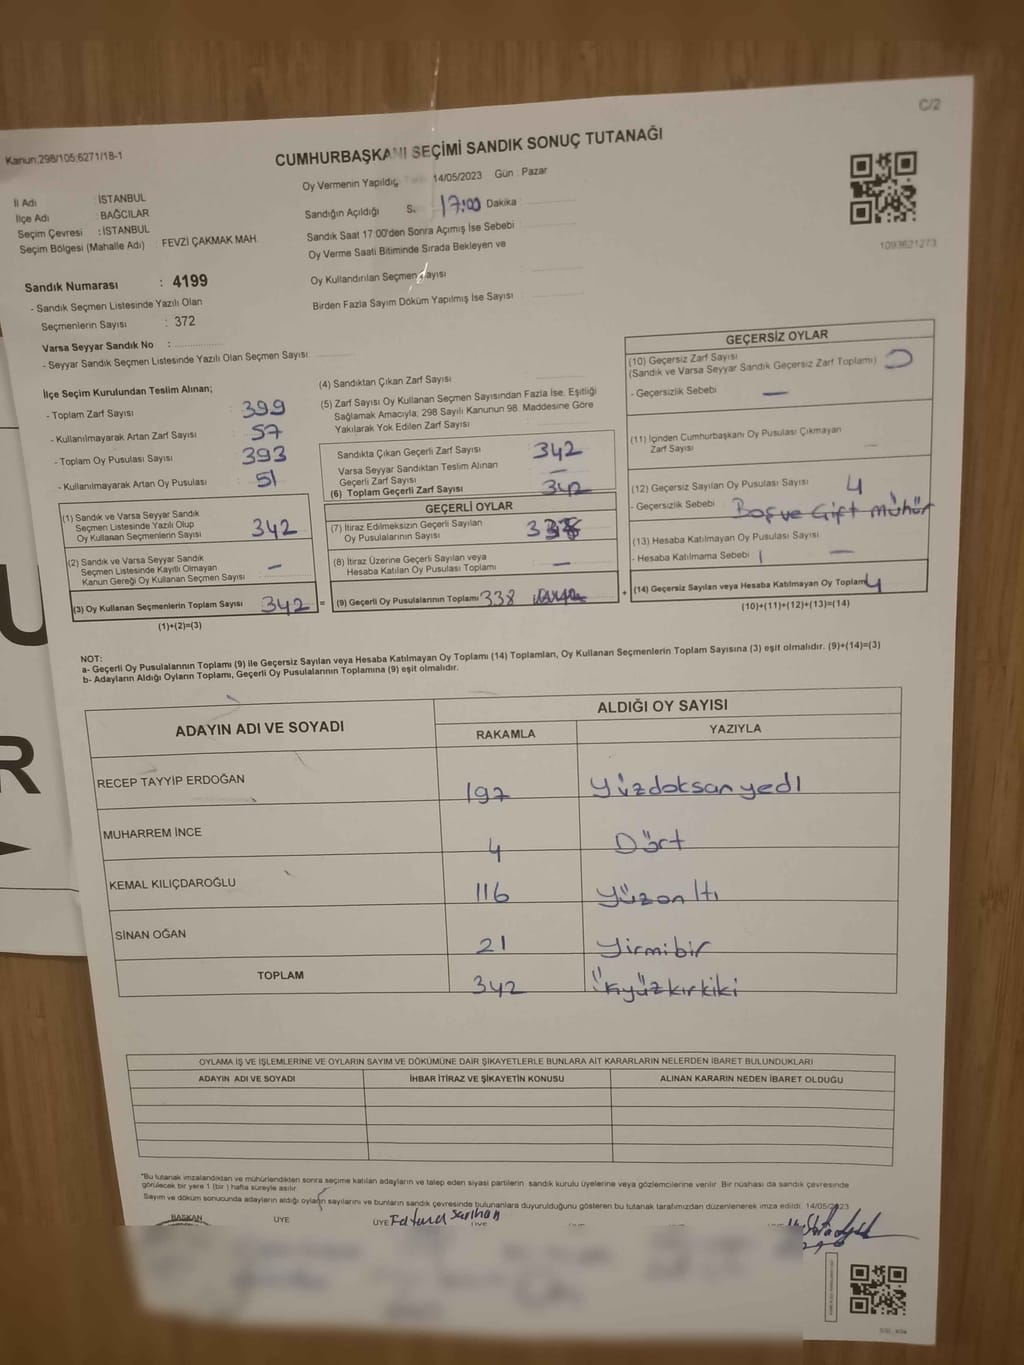 C/2
Kanun:298/105;6271/18-1
CUMHURBAŞKANI SEÇİMİ SANDIK SONUÇ TUTANAĞI
İl Adı : İSTANBUL
İlçe Adı : BAĞCILAR
Seçim Çevresi : İSTANBUL
Seçim Bölgesi (Mahalle Adı) : FEVZİ ÇAKMAK MAH.
Oy Vermenin Yapıldığı 14/05/2023 Gün : Pazar
Sandığın Açıldığı S. 17:00 Dakika :
Sandık Saat 17:00'den Sonra Açımış İse Sebebi
Oy Verme Saati Bitiminde Sırada Bekleyen ve
Oy Kullandırılan Seçmen Sayısı
Birden Fazla Sayım Döküm Yapılmış İse Sayısı
1093621273
Sandık Numarası : 4199
- Sandık Seçmen Listesinde Yazılı Olan
Seçmenlerin Sayısı : 372
Varsa Seyyar Sandık No :
- Seyyar Sandık Seçmen Listesinde Yazılı Olan Seçmen Sayısı:
İlçe Seçim Kurulundan Teslim Alınan;
- Toplam Zarf Sayısı : 399
- Kullanılmayarak Artan Zarf Sayısı : 57
- Toplam Oy Pusulası Sayısı : 393
- Kullanılmayarak Artan Oy Pusulası : 51
(1) Sandık ve Varsa Seyyar Sandık
Seçmen Listesinde Yazılı Olup
Oy Kullanan Seçmenlerin Sayısı 342
(2) Sandık ve Varsa Seyyar Sandık
Seçmen Listesinde Kayıtlı Olmayan
Kanun Gereği Oy Kullanan Seçmen Sayısı –
(3) Oy Kullanan Seçmenlerin Toplam Sayısı 342 =
(1)+(2)=(3)
(4) Sandıktan Çıkan Zarf Sayısı
(5) Zarf Sayısı Oy Kullanan Seçmen Sayısından Fazla İse, Eşitliği
Sağlamak Amacıyla; 298 Sayılı Kanunun 98. Maddesine Göre
Yakılarak Yok Edilen Zarf Sayısı
Sandıkta Çıkan Geçerli Zarf Sayısı 342
Varsa Seyyar Sandıktan Teslim Alınan
Geçerli Zarf Sayısı –
(6) Toplam Geçerli Zarf Sayısı 342
GEÇERLİ OYLAR
(7) İtiraz Edilmeksizin Geçerli Sayılan
Oy Pusulalarının Sayısı 338
(8) İtiraz Üzerine Geçerli Sayılan veya
Hesaba Katılan Oy Pusulası Toplamı –
(9) Geçerli Oy Pusulalarının Toplamı 338 +
GEÇERSİZ OYLAR
(10) Geçersiz Zarf Sayısı
(Sandık ve Varsa Seyyar Sandık Geçersiz Zarf Toplamı)
- Geçersizlik Sebebi –
(11) İçinden Cumhurbaşkanı Oy Pusulası Çıkmayan
Zarf Sayısı –
(12) Geçersiz Sayılan Oy Pusulası Sayısı 4
- Geçersizlik Sebebi Boş ve Çift mühür
(13) Hesaba Katılmayan Oy Pusulası Sayısı
- Hesaba Katılmama Sebebi –
(14) Geçersiz Sayılan veya Hesaba Katılmayan Oy Toplamı 4
(10)+(11)+(12)+(13)=(14)
NOT:
a- Geçerli Oy Pusulalarının Toplamı (9) ile Geçersiz Sayılan veya Hesaba Katılmayan Oy Toplamı (14) Toplamları, Oy Kullanan Seçmenlerin Toplam Sayısına (3) eşit olmalıdır. (9)+(14)=(3)
b- Adayların Aldığı Oyların Toplamı, Geçerli Oy Pusulalarının Toplamına (9) eşit olmalıdır.
ADAYIN ADI VE SOYADI
ALDIĞI OY SAYISI
RAKAMLA YAZIYLA
RECEP TAYYİP ERDOĞAN 197 Yüzdoksan yedi
MUHARREM İNCE 4 Dört
KEMAL KILIÇDAROĞLU 116 Yüzon ltı
SİNAN OĞAN 21 Yirmibir
TOPLAM 342
OYLAMA İŞ VE İŞLEMLERİNE VE OYLARIN SAYIM VE DÖKÜMÜNE DAİR ŞİKAYETLERLE BUNLARA AİT KARARLARIN NELERDEN İBARET BULUNDUKLARI
ADAYIN ADI VE SOYADI İHBAR İTİRAZ VE ŞİKAYETİN KONUSU ALINAN KARARIN NEDEN İBARET OLDUĞU
"Bu tutanak imzalandıktan ve mühürlendikten sonra seçime katılan adayların ve talep eden siyasi partilerin sandık kurulu üyelerine veya gözlemcilerine verilir. Bir nüshası da sandık çevresinde
görülecek bir yere 1 (bir) hafta süreyle asılır.
Sayım ve döküm sonucunda adayların aldığı oyların sayılarını ve bunların sandık çevresinde bulunanlara duyurulduğunu gösteren bu tutanak tarafımızdan düzenlenerek imza edildi. 14/05/2023
BAŞKAN ÜYE ÜYE Fatma Sarıhan